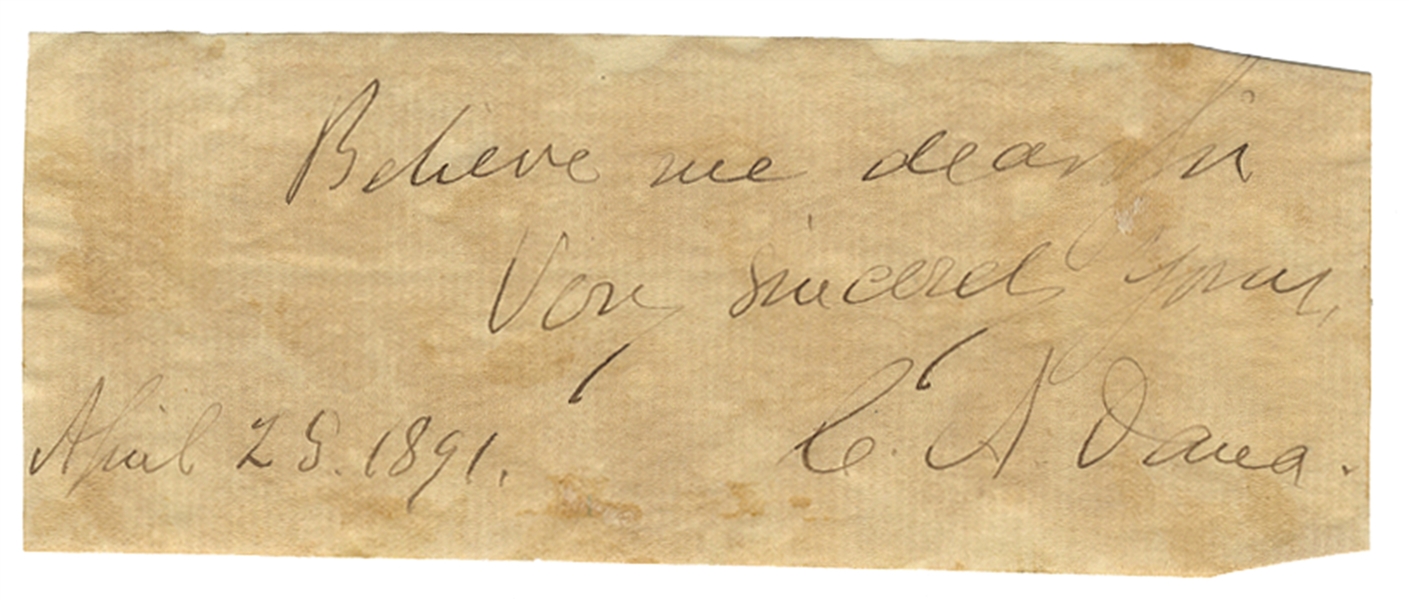 Believe me dear Sir
Very sincerely yours,
C. A. Dana.
April 25. 1891.